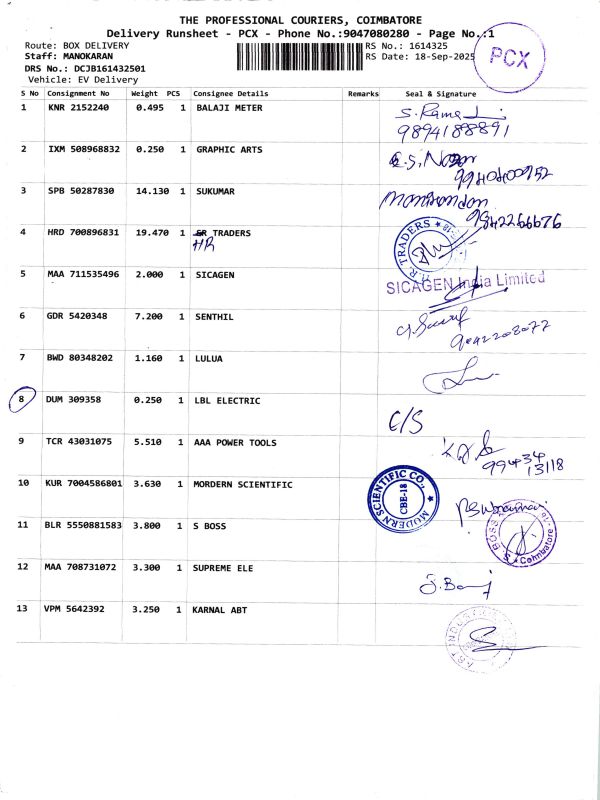 THE PROFESSIONAL COURIERS, COIMBATORE
Delivery Runsheet - PCX - Phone No.:9047080280 - Page No.:1
Route: BOX DELIVERY RS No.: 1614325
Staff: MANOKARAN RS Date: 18-Sep-2025
PCX
DRS No.: DCJB161432501
Vehicle: EV Delivery
S No Consignment No Weight PCS Consignee Details Remarks Seal & Signature
1 KNR 2152240 0.495 1 BALAJI METER
9894188891
2 IXM 508968832 0.250 1 GRAPHIC ARTS
3 SPB 50287830 14.130 1 SUKUMAR
9842266676
4 HRD 700896831 19.470 1 SR TRADERS
HR
H.R. TRADERS
5 MAA 711535496 2.000 1 SICAGEN
SICAGEN India Limited
6 GDR 5420348 7.200 1 SENTHIL
9042208077
7 BWD 80348202 1.160 1 LULUA
8 DUM 309358 0.250 1 LBL ELECTRIC
C/S
9 TCR 43031075 5.510 1 AAA POWER TOOLS
99434
13118
10 KUR 7004586801 3.630 1 MORDERN SCIENTIFIC
MODERN SCIENTIFIC CO., CBE-18
11 BLR 5550881583 3.800 1 S BOSS
BOSS Coimbatore
12 MAA 708731072 3.300 1 SUPREME ELE
13 VPM 5642392 3.250 1 KARNAL ABT